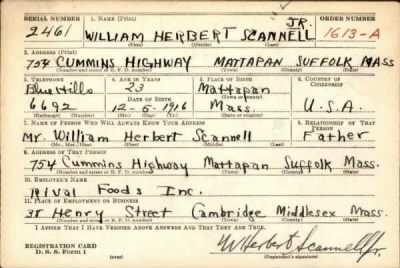 SERIAL NUMBER
1. NAME (Print)
ORDER NUMBER
2461
WILLIAM HERBERT SCANNELL JR.
1613-A
(First) (Middle) (Last)
2. ADDRESS (Print)
754 CUMMINS HIGHWAY MATTAPAN SUFFOLK MASS
(Number and street or R. F. D. number) (Town) (County) (State)
3. TELEPHONE
4. AGE IN YEARS
5. PLACE OF BIRTH
6. COUNTRY OF CITIZENSHIP
Blue Hills
23
Mattapan
DATE OF BIRTH
(Town or county)
6692
12-5-1916
Mass.
U.S.A.
(Exchange) (Number)
(Mo.) (Day) (Yr.)
(State or country)
7. NAME OF PERSON WHO WILL ALWAYS KNOW YOUR ADDRESS
8. RELATIONSHIP OF THAT PERSON
Mr. William Herbert Scannell Father
(Mr., Mrs., Miss) (First) (Middle) (Last)
9. ADDRESS OF THAT PERSON
754 Cummins Highway Mattapan Suffolk Mass.
(Number and street or R. F. D. number) (Town) (County) (State)
10. EMPLOYER'S NAME
Rival Foods Inc.
11. PLACE OF EMPLOYMENT OR BUSINESS
Henry Street Cambridge Middlesex Mass.
(Number and street or R. F. D. number) (Town) (County) (State)
I AFFIRM THAT I HAVE VERIFIED ABOVE ANSWERS AND THAT THEY ARE TRUE.
REGISTRATION CARD
D. S. S. Form 1
W Herbert Scannell Jr.
(Registrant's signature)